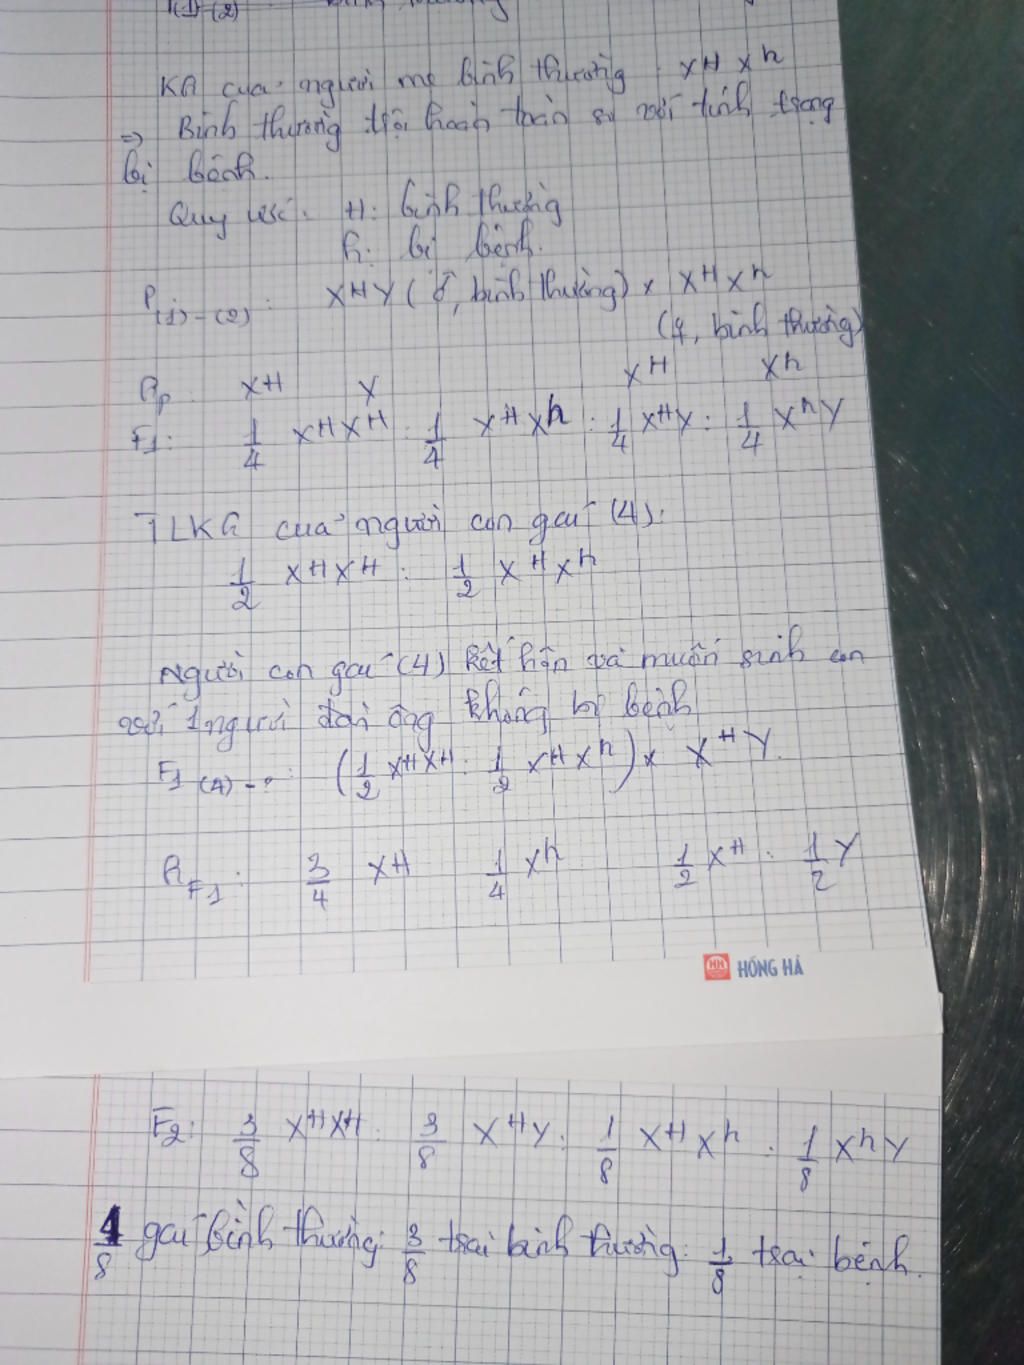 (1) - (2)
KG của người mẹ bình thường : XH Xh
⇒ Bình thường trội hoàn toàn so với tính trạng
bị bệnh.
Quy ước: H: bình thường
h: bị bệnh.
P(1)-(2): XHY (♂, bình thường) x XHXh
(♀, bình thường)
Gp : XH Y XH Xh
F1: 1/4 XHXH : 1/4 XHXh : 1/4 XHY : 1/4 XhY
TLKG của người con gái (4):
1/2 XHXH : 1/2 XHXh
Người con gái (4) kết hôn và muốn sinh con
với 1 người đàn ông không bị bệnh
F1 (4) - : (1/2 XHXH : 1/2 XHXh) x XHY.
GF1: 3/4 XH 1/4 Xh 1/2 XH : 1/2 Y
HN HỒNG HÀ
F2: 3/8 XHXH : 3/8 XHY : 1/8 XHXh : 1/8 XhY
4/8 gái bình thường: 3/8 trai bình thường: 1/8 trai bệnh.